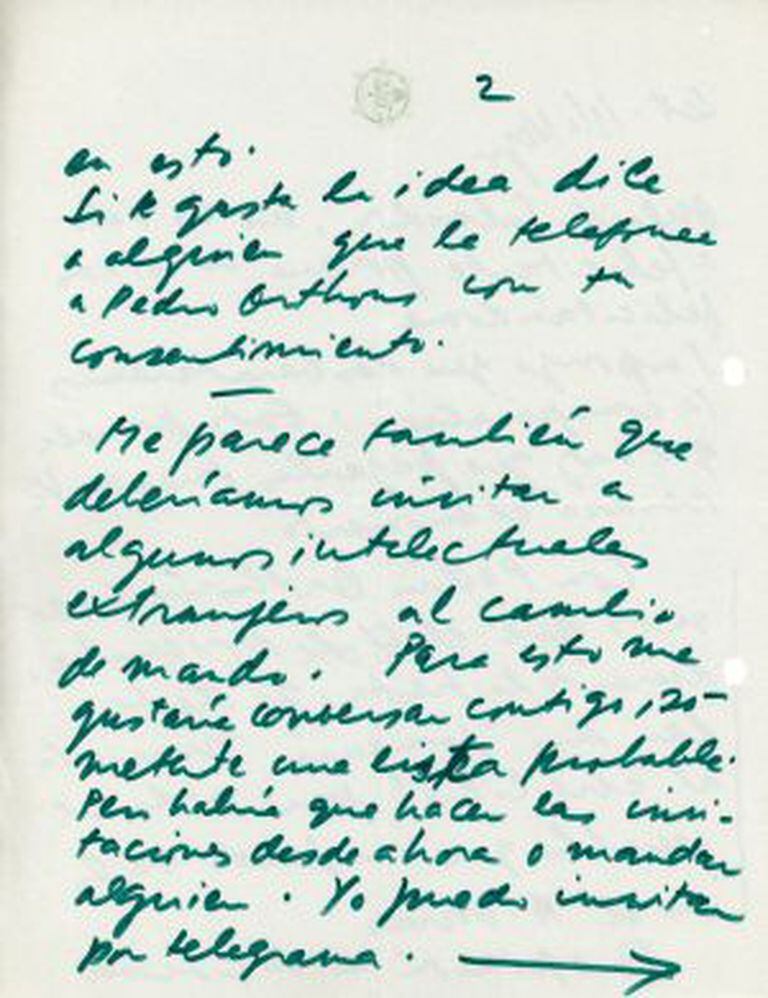 2
en esto.
Si te gusta la idea dile
a alguien que le telefonee
a Pedro con tu
consentimiento.
Me parece también que
deberíamos invitar a
algunos intelectuales
extranjeros al cambio
de mando. Para esto me
gustaría conversar contigo,
meterte una lista probable.
Pero habría que hacer las invi-
taciones desde ahora o mandar
alguien. Yo puedo invitar
por telegrama.